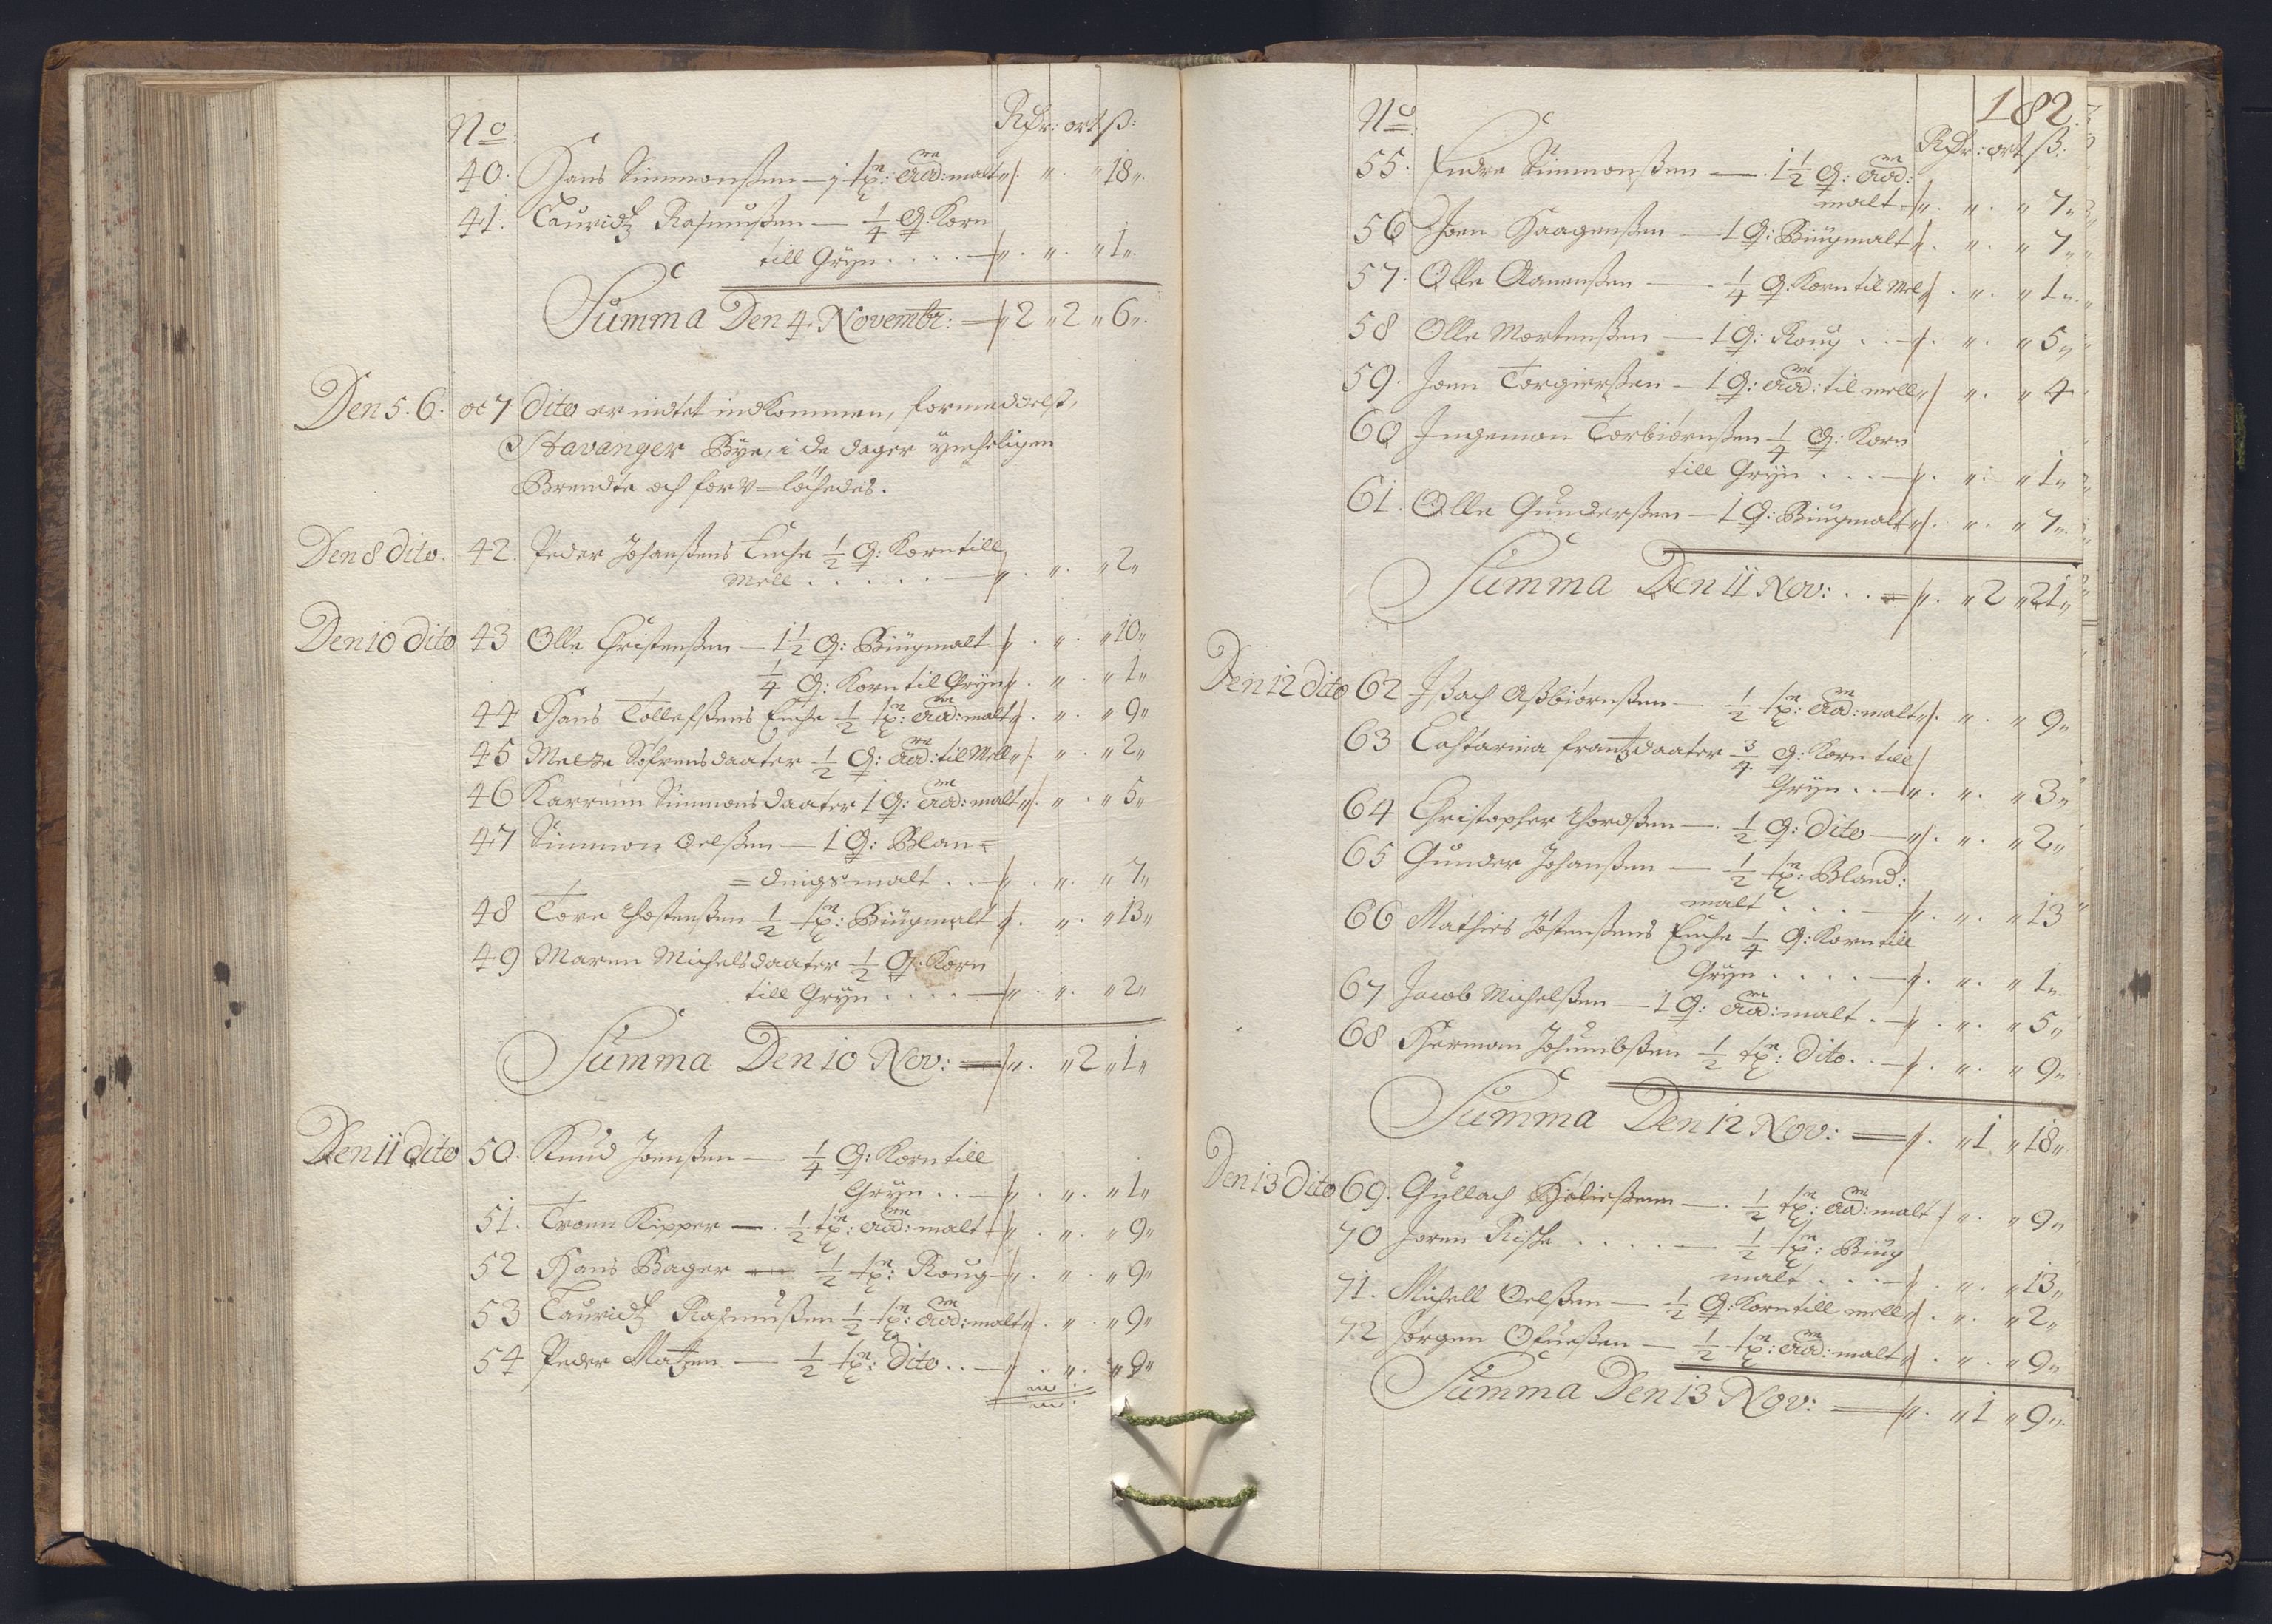 No: Rdr: ort ß:
40. Hans Simmonßen — 1 tn: ad: malt " " 18 "
41. Lauridtz Rasmußen — 1/4 q: Korn
till Gryn . . . . — " . " . " 1 "
Summa Den 4 Novembr: — " 2 " 2 " 6 "
Den 5. 6. oc 7 dito er indtet indkommen, formedelst,
Stavanger Bye, i de dager
Brendte och for
Den 8 dito. 42. Peder Johanßens Enche 1/2 q: Korn till
Mell . . . . . — " . " . " 2 "
Den 10 dito 43 Olle Christenßen — 1 1/2 q: Biugmalt " . " . " 10 "
1/4 q: Korn til Gryn " . " . " 1 "
44 Hans Tollefßens Enche 1/2 tn: ad: malt " . " . " 9 "
45 Mette Søfrensdaater 1/2 q: ad: til Mell " . " . " 2 "
46 Karrenn Simmonsdaater 1 q: ad: malt " . " . " 5 "
47 Simmon Oelßen — 1 q: Blan=
=dingsmalt . . — " . " . " 7 "
48 Tore Thostenßen 1/2 tn: Biugmalt " . " . " 13 "
49 Maren Michelsdaater 1/2 q: Korn
till Gryn . . . . — " . " . " 2 "
Summa Den 10 Nov: — " . " 2 " 1 "
Den 11 dito 50. Knud Joenßen — 1/4 q: Korn till
Gryn . . — " . " . " 1 "
51. Tronn Kipper — . 1/2 tn: ad: malt — " . " . " 9 "
52 Hans Bager — 1/2 tn: Roug — " . " . " 9 "
53 Lauridtz Rasmußen 1/2 tn: ad: malt " . " . " 9 "
54 Peder Matzen — 1/2 tn: dito . . — " . " . " 9 "
182.
No: Rdr: ort ß:
55. Endre Simmonßen — . 1 1/2 q: ad:
malt — " . " . " 7 "
56 Joen Haagenßen — 1 q: Biugmalt " . " . " 7 "
57. Olle Aanenßen — 1/4 q: Korn til Mel " . " . " 1 "
58 Olle Mortenßen — 1 q: Roug . . — " . " . " 5 "
59. Jonn Torgierßen — 1 q: ad: til mell " . " . " 4
60 Ingemon Torbiørnßen 1/4 q: Korn
till Gryn . . . — " . " . " 1 "
61. Olle Gunderßen — 1 q: Biugmalt " . " . " 7 "
Summa Den 11 Nov: . . — " . " 2 " 21 "
Den 12 dito 62 Ißach Aßbiørnßen — . 1/2 tn: ad: malt " . " . " 9 "
63 Cahtarina frantzdaater 3/4 q: Korn till
Gryn . . — " . " . " 3 "
64 Christopher Thordßen — . 1/2 q: dito — " . " . " 2 "
65 Gunder Johanßen — 1/2 tn: Bland:
malt . . . — " . " . " 13 "
66 Mathies Jostenßens Enche 1/4 q: Korn till
Gryn . . . . — " . " . " 1 "
67 Jacob Michelßen — 1 q: ad: malt . — " . " . " 5 "
68 Herman 1/2 tn: dito . . — " . " . " 9 "
Summa Den 12 Nov: — " . " 1 " 18 "
Den 13 dito 69. Gullach — . 1/2 tn: ad: malt " . " 9 "
70 Joren Riske . . . . — 1/2 tn: Biug
malt . . . — " . " . " 13 "
71. Michell Oelßen — 1/2 q: Korn till mell " . " . " 2 "
72 Jørgen — 1/2 tn: ad: malt " . " . " 9 "
Summa Den 13 Nov: — " . " 1 " 9 "